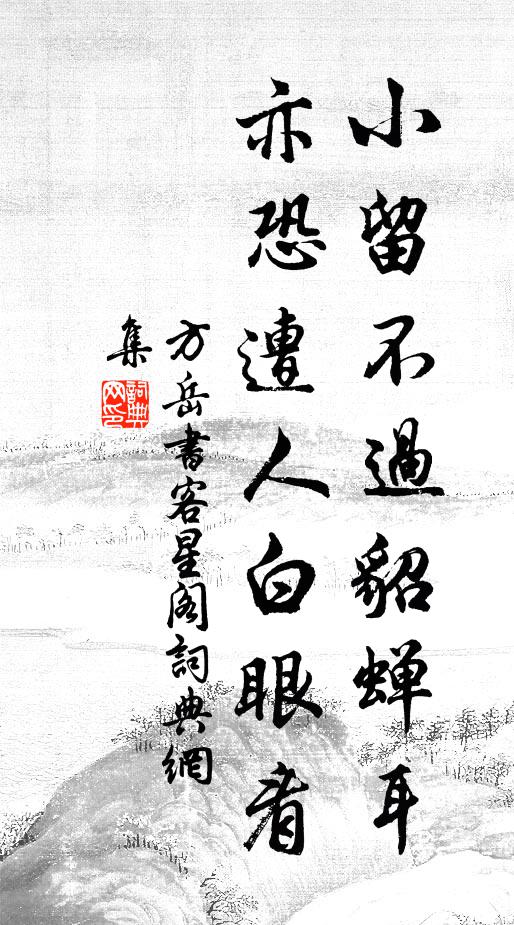 小留不過貂蝉耳
亦恐遭人白眼看
方岳書客星阁詞典網
集
詞典
网印